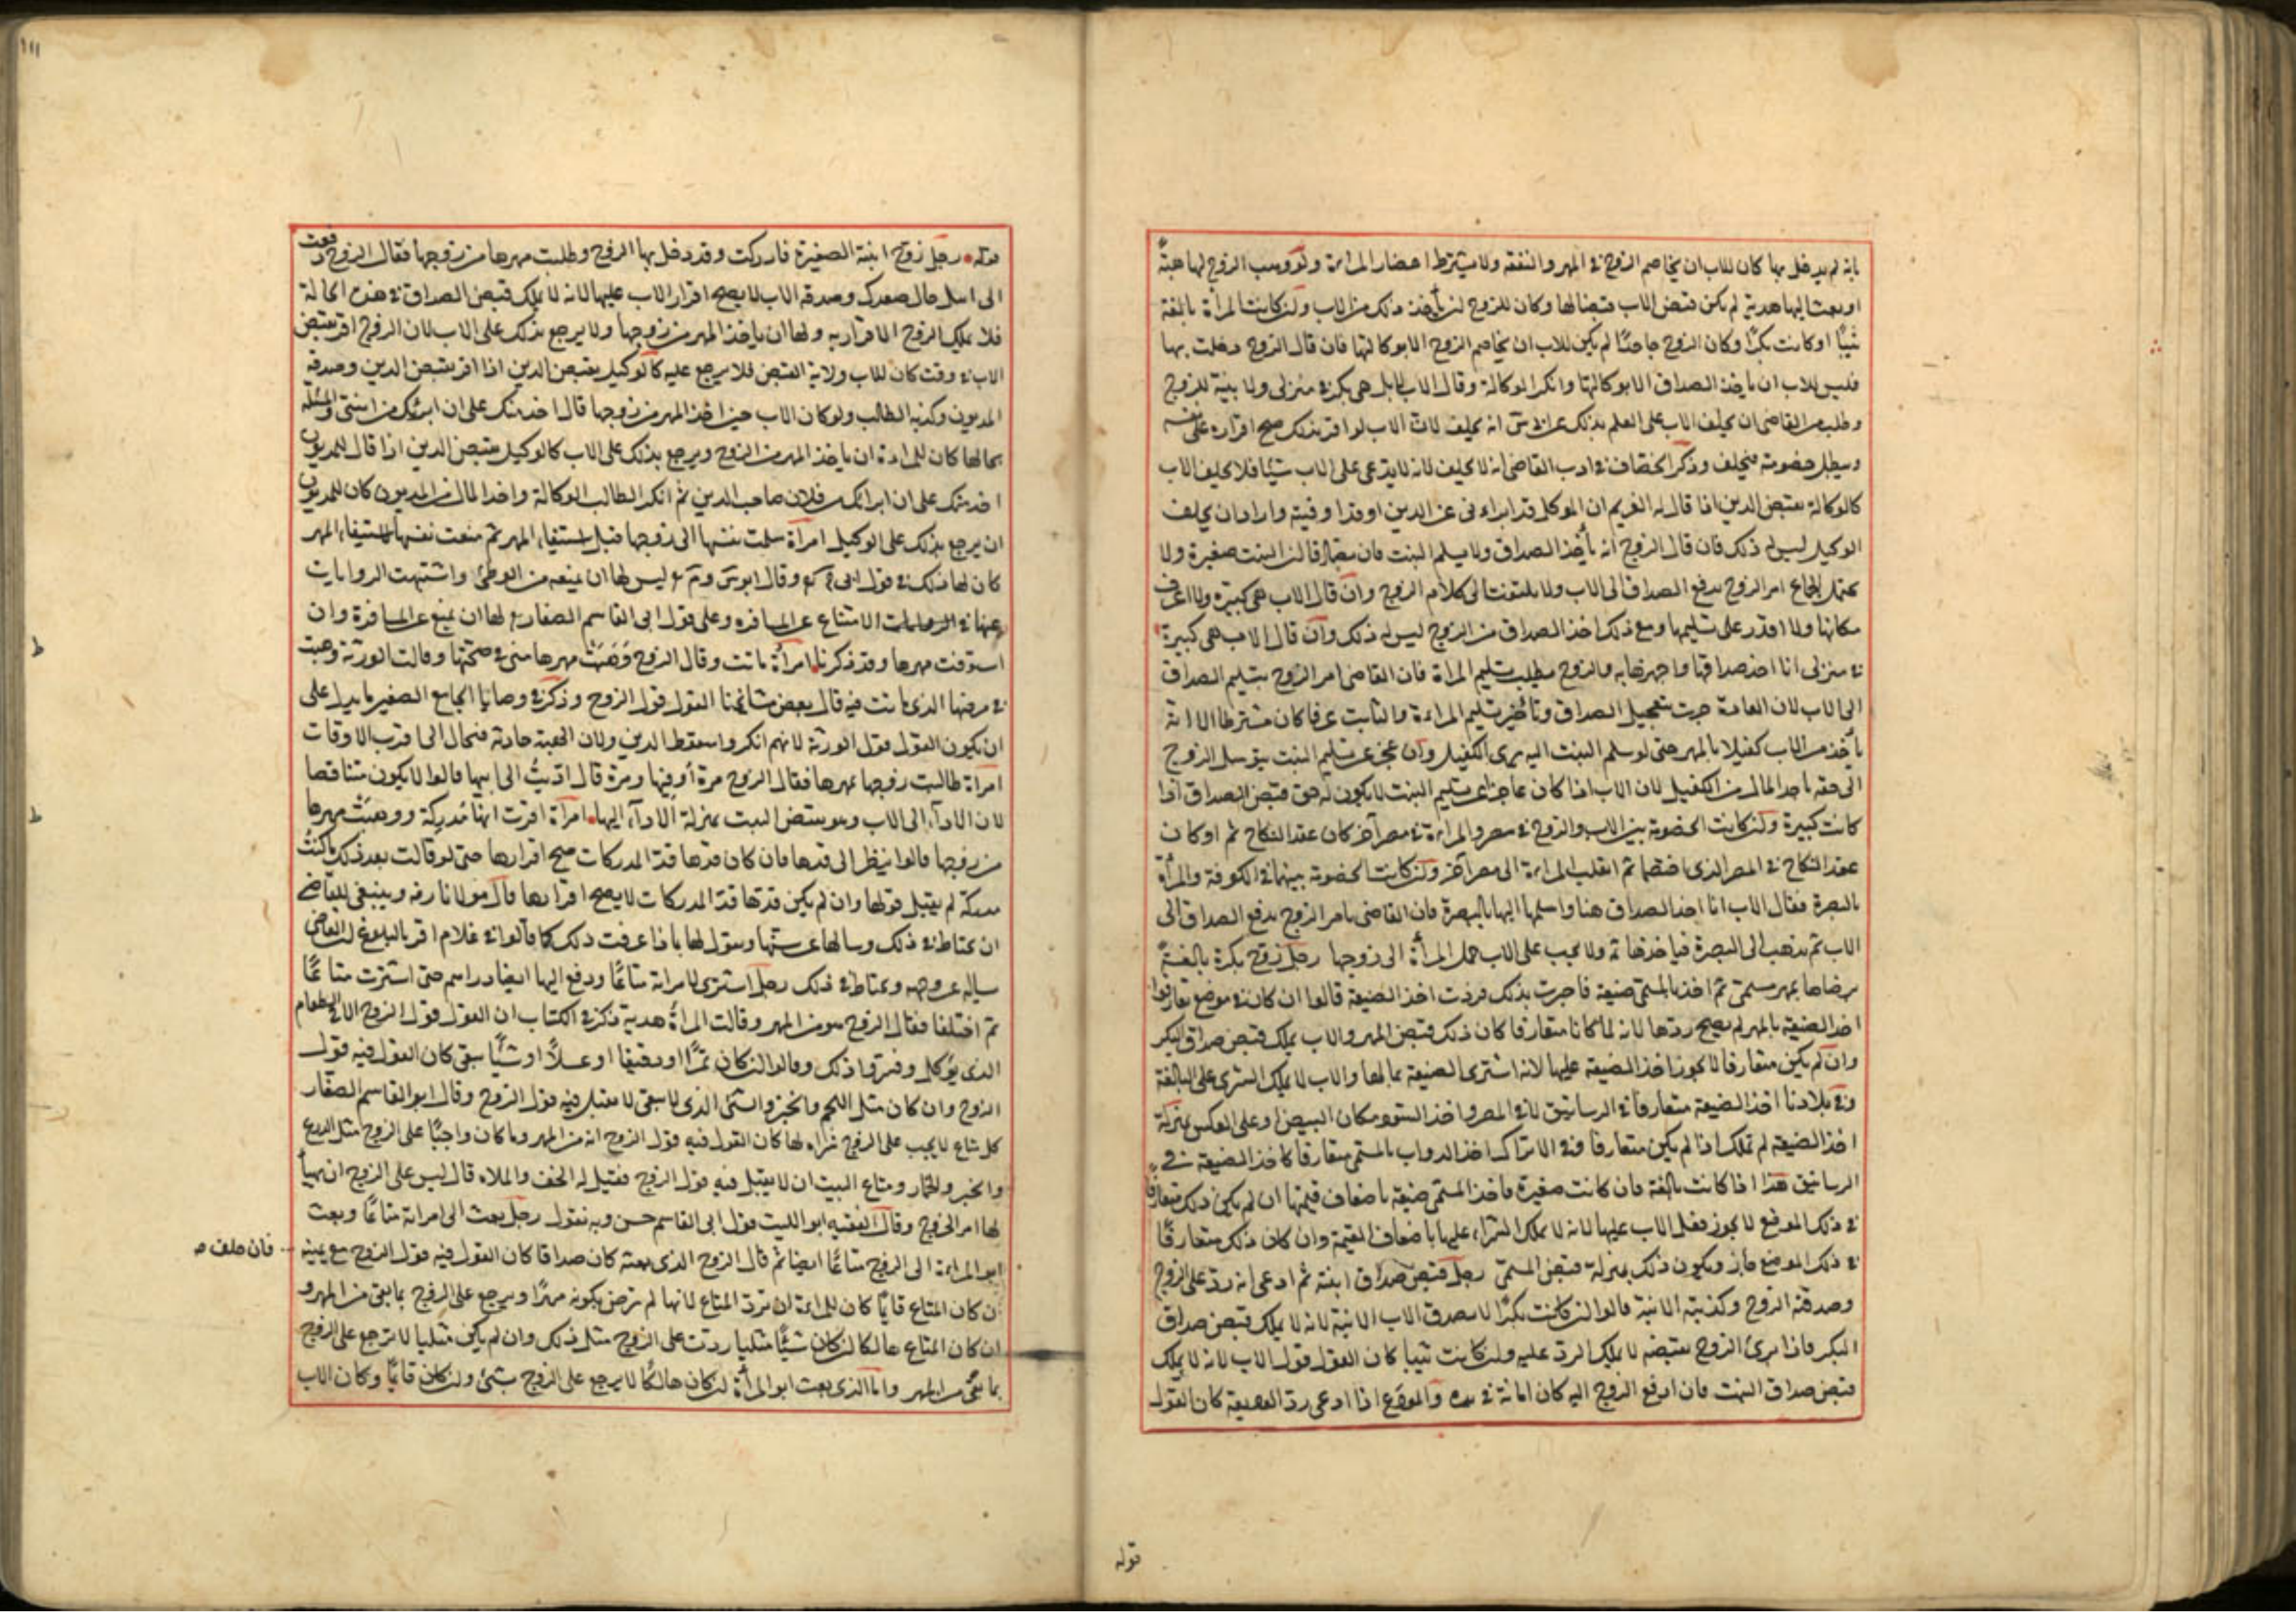 بانه لم يدخل بها كان للاب ان يخاصم الزوج في المهر والنفقة ولا يشترط احضار المراة ولو وهب الزوج لها هبة
او بعث اليها هدية لم يكن قبض الاب قبضا لها وكان للزوج ان يأخذ ذلك من الاب وان كانت المرأة بالغة
ثيبًا او كانت بكرًا وكان الزوج جاحدًا لم يكن للاب ان يخاصم الزوج الا بوكالتها فان قال الزوج دخلت بها
فليس للاب ان ياخذ الصداق الا بوكالتها وانكر الوكالة وقال الاب لا بل هي بكر في منزلي ولا بينة للزوج
وطلب من القاضي ان يحلف الاب على العلم بذلك عن س انه يحلف لان الاب لو اقر بذلك صح اقراره على نفسه
ويبطل خصومته فيحلف وذكر الخصاف في ادب القاضي انه لا يحلف لانه لا يدعي على الاب شيئا فلا يحلف الاب
كالوكالة بقبض الدين اذا قال له الغريم ان الموكل قد ابراءني عن الدين او قد اوفيته واراد ان يحلف
الوكيل ليس له ذلك فان قال الزوج انه يأخذ الصداق ولا يسلم البنت فان كانت البنت صغيرة ولا
تحتمل الجماع امر الزوج بدفع الصداق الى الاب ولا يلتفت الى كلام الزوج وان قال الاب هي كبيرة ولا اعرف
مكانها ولا اقدر على تسليمها ومع ذلك اخذ الصداق من الزوج ليس له ذلك وان قال الاب هي كبيرة
في منزلي انا اخذ صداقها واجهزها به والزوج يطلب تسليم المراة فان القاضي امر الزوج بتسليم الصداق
الى الاب لان العادة جرت بتعجيل الصداق وتأخير تسليم المراءة والثابت عرفا كان مشترطا الا انه
يأخذ من الاب كفيلا بالمهر حتى لو سلم البنت اليه برى الكفيل وان عجز عن تسليم البنت يتوسل الزوج
الى حقه باخذ المال من الكفيل لان الاب اذا كان عاجزا عن تسليم البنت لا يكون له حق قبض الصداق اذا
كانت كبيرة وان كانت الخصومة بين الاب والزوج في مصر والمراءة في مصر آخر كان عقد النكاح ثم او كان
عقد النكاح في المصر الذي اختصما ثم انقلب المراءة الى مصر آخر وان كانت الخصومة بينهما في الكوفة والمرأة
بالبصرة فقال الاب انا اخذ الصداق هنا واسلمها اليها بالبصرة فان القاضي يامر الزوج بدفع الصداق الى
الاب ثم يذهب الى البصرة فياخذها ثم ولا يجب على الاب حمل المرأة الى زوجها رجل زوج بكرة بالغةً
برضاها بمهر مسمى ثم اخذ بالمسمى ضيعة فاخبرت بذلك فردت اخذ الضيعة قالوا ان كان في موضع تعارفوا
اخذ الضيعة بالمهر لم يصح ردها لانه لما كانا متعارفا كان ذلك قبض المهر والاب يملك قبض صداق البكر
وان لم يكن متعارفا لا يجوز اخذ الضيعة عليها لانه اشترى الضيعة بمالها والاب لا يملك الشرى على البالغة
وفي بلادنا اخذ الضيعة متعارفا في الرساتيق لا في المصر واخذ السود مكان البيض او على العكس بمنزلة
اخذ الضيعة لم تملك اذا لم يكن متعارفا وفي الاتراك اخذ الدواب بالمسمى متعارفا كاخذ الضيعة في
الرساتيق هذا اذا كانت بالغة فان كانت صغيرة فاخذ المسمى ضيعة باضعاف قيمتها ان لم يكن ذلك متعارفا
في ذلك الموضع لا يجوز فعل الاب عليها لانه لا يملك الشراء عليها باضعاف القيمة وان كان ذلك متعارفًا
في ذلك الموضع جاز ويكون ذلك بمنزلة قبض المسمى رجل قبض صداق ابنته ثم ادعى انه رد على الزوج
وصدقه الزوج وكذبته الابنة قالوا ان كانت بكرًا لا يصدق الاب الا ببينة لانه لا يملك قبض صداق
البكر فاذا برئ الزوج بقبضه لا يملك الرد عليه وان كانت ثيبا كان القول قول الاب لانه لا يملك
قبض صداق البنت فان دفع الزوج اليه كان امانة في يده والمودَع اذا ادعى رد الوديعة كان القول
قوله
قوله رجل زوج ابنته الصغيرة فادركت وقد دخل بها الزوج وطلبت مهرها من زوجها فقال الزوج دفعت
الى ابيك حال صغرك وصدقه الاب لا يصح اقرار الاب عليها لانه لا يملك قبض الصداق في هذه الحالة
فلا يملك الزوج الاقرار به ولها ان ياخذ المهر من زوجها ولا يرجع بذلك على الاب لان الزوج اقر بقبض
الاب في وقت كان للاب ولاية القبض فلا يرجع عليه كالوكيل بقبض الدين اذا اقر بقبض الدين وصدقه
المديون وكذبه الطالب ولو كان الاب حين اخذ المهر من زوجها قال اخذ منك على ان ابرئك من ابنتي والمسئلة
بحالها كان للمراءة ان ياخذ المهر من الزوج ويرجع بذلك على الاب كالوكيل بقبض الدين اذا قال للمديون
اخذ منك على ان ابرائك من فلان صاحب الدين ثم انكر الطالب الوكالة واخذ المال من المديون كان للمديون
ان يرجع بذلك على الوكيل امراة سلمت نفسها الى زوجها قبل استيفاء المهر ثم منعت نفسها لاستيفاء المهر
كان لها ذلك في قول ابي ح رح وقال ابو س وم رح ليس لها ان يمنعه من الوطئ واشتبهت الروايات
عنها في الامتناع عن المسافره وعلى قول ابي القاسم الصفار رح لها ان يمنع عن المسافرة وان
استوفت مهرها وقد ذكرنا امرأة ماتت وقال الزوج وَهَبَتْ مهرها مني في صحتها وقالت الورثة وهبت
في مرضها الذي ماتت فيه قال بعض مشائخنا القول قول الزوج وذكر في وصايا الجامع الصغير ما يدل على
ان يكون القول قول الورثة لانهم انكروا سقوط الدين ولان الهبة حادثة فتحال الى اقرب الاوقات
امراة طالبت زوجها بمهرها فقال الزوج مرة أوفيتها ومرة قال اديتُ الى ابيها قالوا لا يكون متناقضا
لان الاداء الى الاب وهو يقبض للبنت بمنزلة الاداء اليها امراة اقرت انها مُدرِكة ووهبَتْ مهرها
من زوجها قالوا ينظر الى قدها فان كان قدها قد المدركات صح اقرارها حتى لو قالت بعد ذلك ما كنتُ
مدركة لم يقبل قولها وان لم يكن قدها قد المدركات لا يصح اقرارها قال مولانا رضه وينبغي للقاضي
ان يحتاط في ذلك وسالها عن سنها ويقول لها بماذا عرفت ذلك كما قالوا في غلام اقر بالبلوغ ان القاضي
يساله عن وجهه ويحتاط في ذلك رجل اشترى لامراته متاعًا ودفع اليها ايضا دراهم حتى اشترت متاعًا
ثم اختلفا فقال الزوج هو من المهر وقالت المراةُ هدية ذكر في الكتاب ان القول قول الزوج الا في الطعام
الذي يؤكل وفسر في ذلك وقالوا ان كان تمرًا او دقيقا او عسلاً او شيئًا يبقى كان القول فيه قول
الزوج وان كان مثل اللحم والخبز والشئ الذي لا يبقى لا يقبل فيه قول الزوج وقال ابو القاسم الصفار
كل متاع لا يجب على الزوج شراه لها كان القول فيه قول الزوج انه من المهر وما كان واجبًا على الزوج مثل الدرع
والخبز والخمار ومتاع البيت ان لا يقبل فيه قول الزوج فقيل له الخف والملاه قال ليس على الزوج ان يهيأ
لها امر الخروج وقال الفقيه ابو الليث قول ابي القاسم حسن وبه نقول رجل بعث الى امراته متاعًا وبعث
ابو المراءة الى الزوج متاعًا ايضا ثم قال الزوج الذي بعثته كان صداقا كان القول فيه قول الزوج مع يمينه
فان حلف صه
ان كان المتاع قايمًا كان للمراءة ان ترد المتاع لانها لم ترض بكونه مهرًا ويرجع على الزوج بما بقي من المهر و
ان كان المتاع هالكا ان كان شيئًا مثليا ردت على الزوج مثل ذلك وان لم يكن مثليا لا ترجع على الزوج
بما بقي من المهر واما الذي بعث ابو المرأة ان كان هالكًا لا يرجع على الزوج بشئ وان كان قايمًا وكان الاب